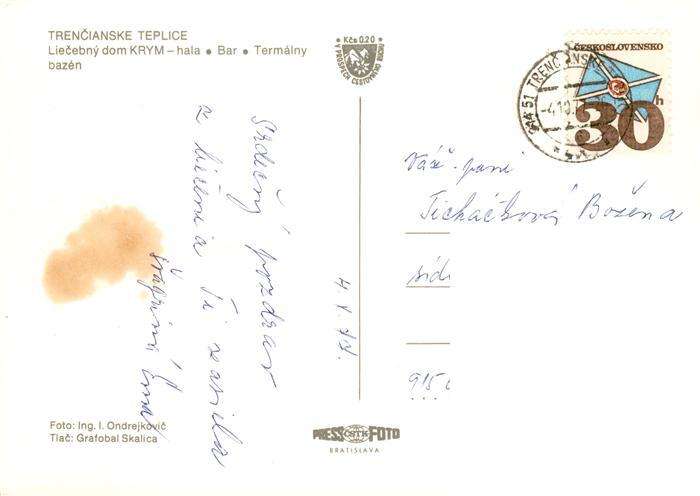 TRENČIANSKE TEPLICE
Liečebný dom KRYM – hala • Bar • Termálny
bazén
Kčs 0,20
V PROSPECH CESTOVNÉHO RUCHU
ČESKOSLOVENSKO
30h
914 51 TRENČIANSKE
-4.10.7
Srdečný pozdrav
z liečenia Ti zasiela
Ema
Váž. pani
Ticháčková Božena
sídl
915
Foto: Ing. I. Ondrejkovič
Tlač: Grafobal Skalica
PRESS ČSTK FOTO
BRATISLAVA